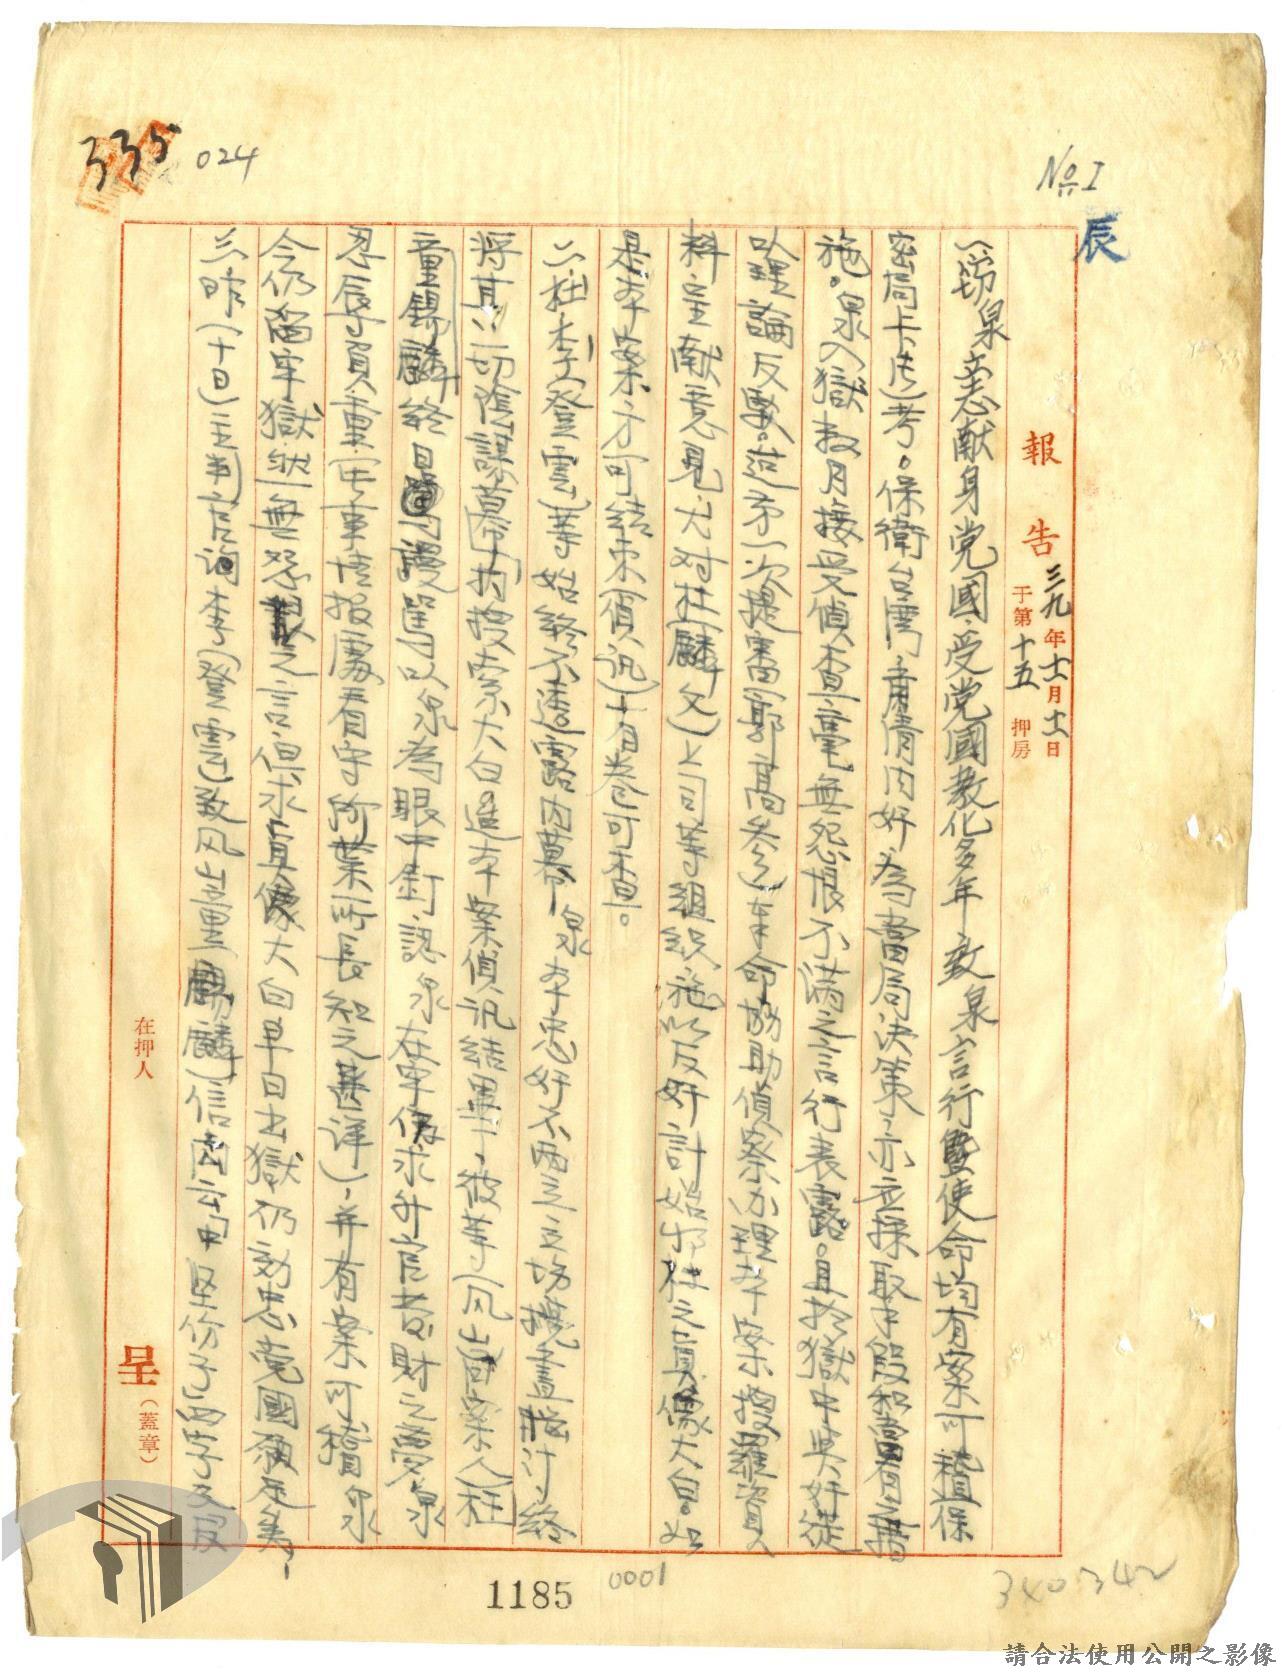 335 024
No I
辰
報告 三九年十一月十一日
于第十五押房
一、竊泉立志献身党國、受党國教化多年、致泉言行暨使命均有案可稽(保
密局卡片)考。保衛台灣、肅清內奸、為當局決策、亦應採取手段和當有之措
施。泉入獄数月接受偵查毫無怨恨不滿之言行表露。且於獄中與奸徒
以理論反駁。迨第一次提審(郭高参)奉命協助偵察办理本案搜羅資
料呈献意見、尤对杜(麟文)上司等組織施以反奸計始明杜之真像大白。如
是本案才可结束(偵訊)十月卷可查。
二、杜李(登雲)等始終不透露內幕、泉本忠奸不兩立立場撓盡腦汁終
將其一切陰謀幕內搜索大白。迨本案偵訊結畢、彼等(风山首案人)杜
童錦麟終日謾罵以泉為眼中釘認泉在牢係求升官發財之夢泉
忍辱負重(軍事情报處看守所葉所長知之甚详)、并有案可稽泉
今仍囚牢獄、然無怨恨之言但求真像大白早日出獄仍効忠党國願足矣、
三、昨(十日)主判官询李(登雲)致风山童錦麟信內云「中坚份子」四字又反
在押人
呈(蓋章)
1185
0001
340342
請合法使用公開之影像